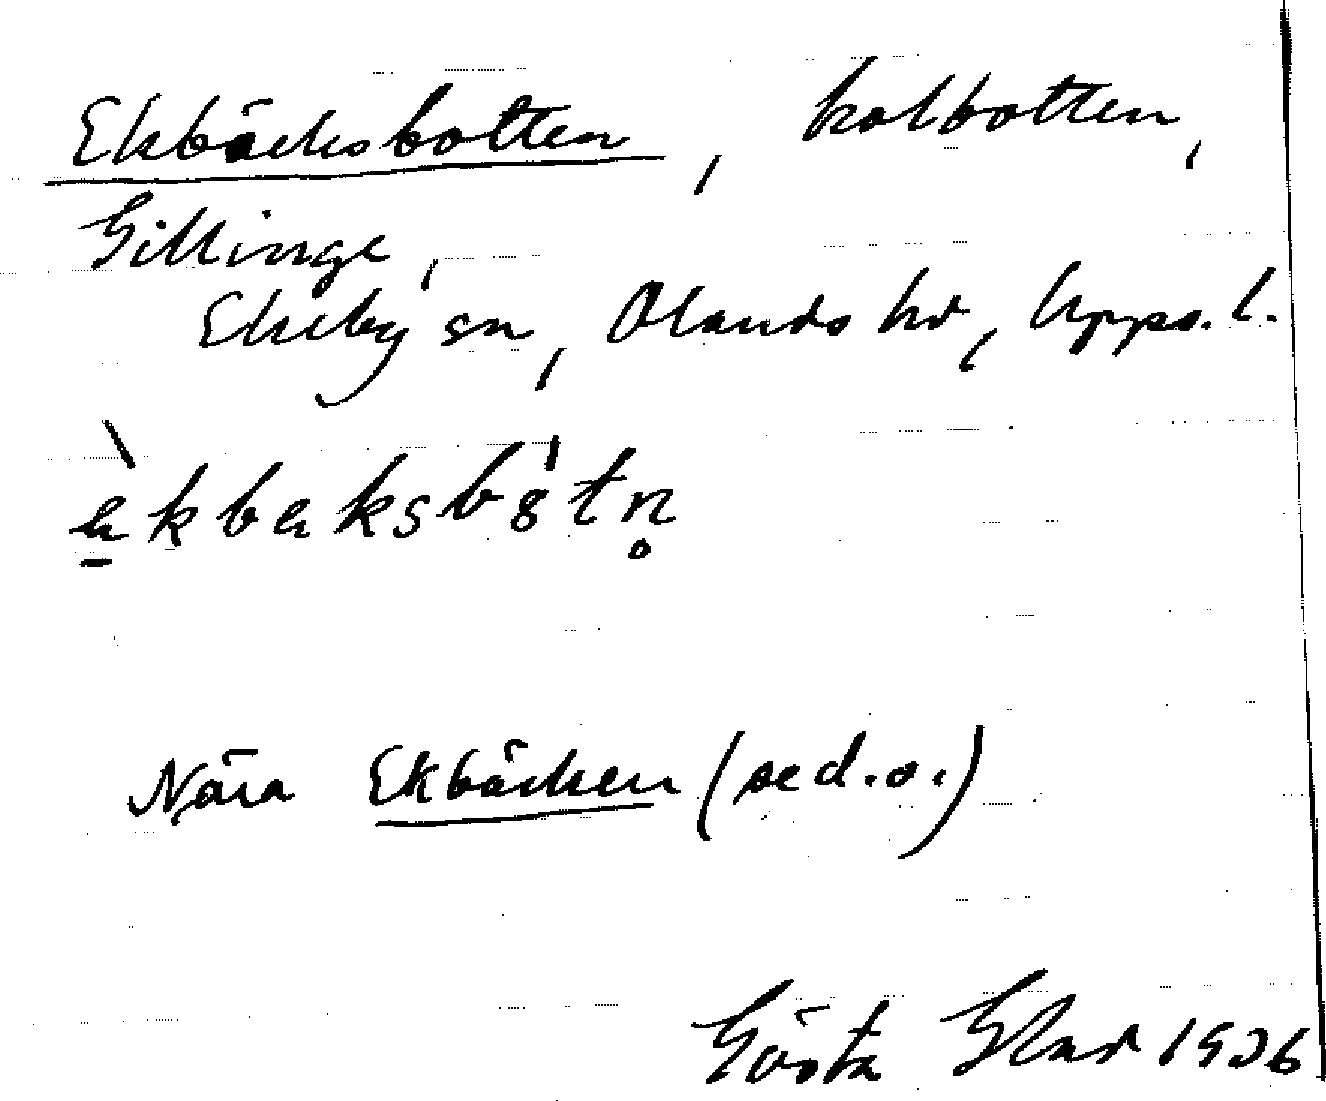 Ekbäcksbotten, kolbotten,
Gillinge,
Ekeby sn, Olands hd, Upps. l.
Nära Ekbäcken (se d.o.)
Gösta Elar 1936